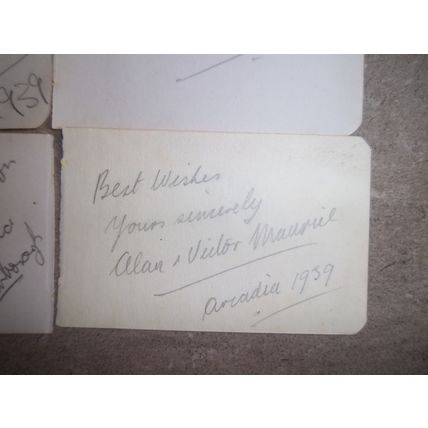 1939
Best Wishes
Yours sincerely
Alan & Victor Mauriel
Arcadia 1939